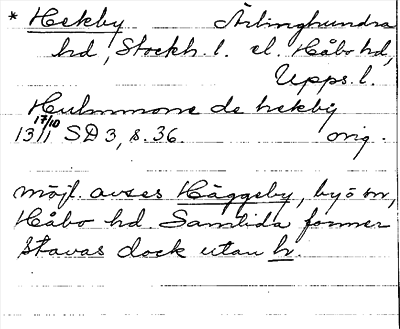 * Hekby Ärlinghundra
hd, Stockh. l. el. Håbo hd,
Upps. l.
Hulmmone de hekby
17/10
1311 SD 3, s. 36. orig.
möjl. avses Häggeby, by o sn,
Håbo hd. Samtida former
stavas dock utan h.